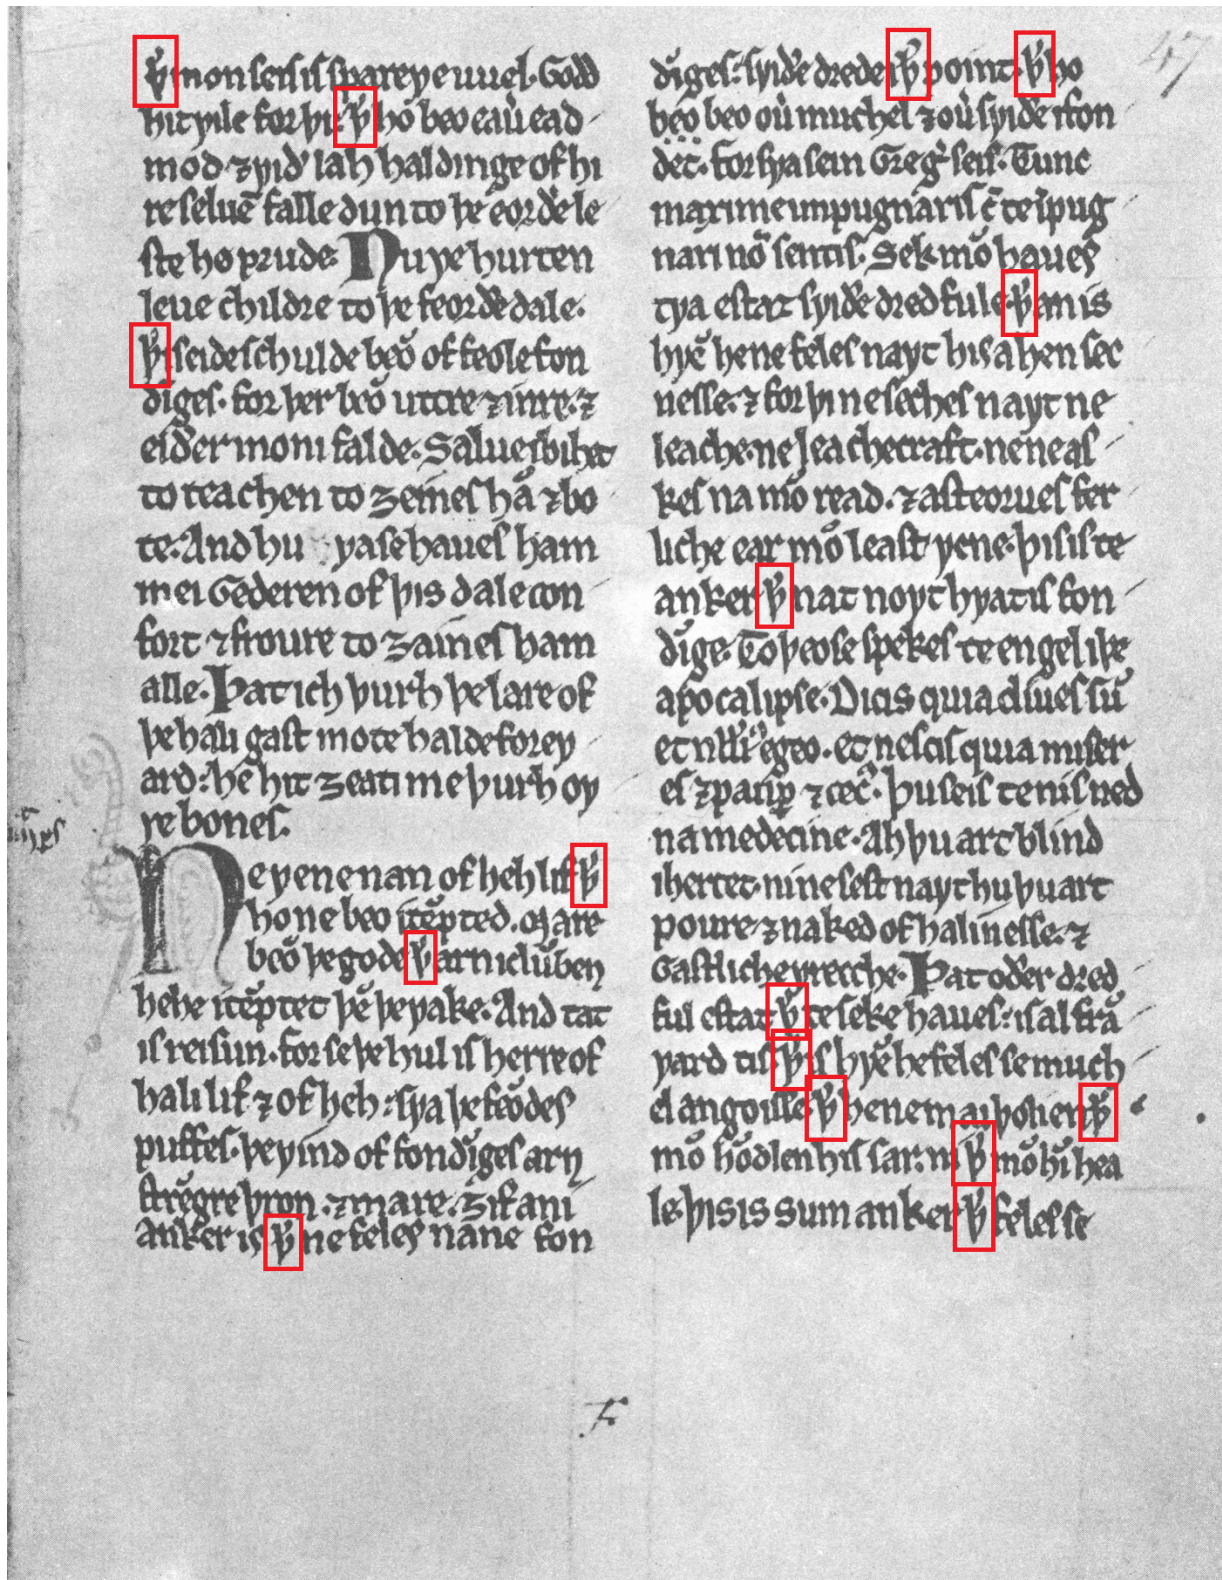 47
ꝥ mon seis is spare ƿe uuel. Godd
hit ƿile for þi. ꝥ ho beo eau̇ ead
mod ⁊ ƿið lah haldinge of hi
re seluē falle dun to þe eorðe le
ste ho prude. Nu ƿe hurten
leue childre to þe feorðe dale.
ꝥ i seide schulde beō of feole fon
dīges. for þer beō uttre ⁊ inre. ⁊
eiðer moni falde. Salue i bihet
to teachen to ȝeines hā ⁊ bo
te. And hu ƿa se haues ham
mei Gederen of þis dale con
fort ⁊ froure to ȝaines ham
alle. Þat ich þurh þe lare of
þe hali gast mote halde foreƿ
ard: he hit ȝeati me þurh oƿ
re bones.
Ne ƿene nan of heh lif ꝥ
ho ne beo itēpted. Mare
beō þe gode ꝥ arn iclūben
hehe itēptet þē þe ƿake. And tat
is reisun. for se þe hul is herre of
hali lif ⁊ of heh: sƿa þe feōdes
puffes. þe ƿind of fondīges arn
strēgre þron. ⁊ mare. Ȝif ani
anker is ꝥ ne feles nane fon
dīges: sƿiðe drede i ꝥ point. ꝥ ho
beo beo ou̇ muchel ⁊ ou̇ sƿiðe ifon
det. for sƿa sein Greg̓ seis. Tunc
maxime inpugnaris c̄ te īpug
nari nō sentis. Sek mō haues
tƿa estaz sƿiðe dredfule. ꝥ an is
hƿē he ne feles naƿt his ahen sec
nesse. ⁊ for þi ne seches naƿt ne
leache. ne leachecraft. ne ne as
kes na mō read. ⁊ asteorues fer
liche ear mō least ƿene. þis is te
anker ꝥ nat noƿt hƿat is fon
dīge. To þeose spekes te engel i þe
apocalipse. Dicis quia diues sū
et nllī egeo. et nescis quia miser
es ⁊ paup̄ ⁊ cec̓. Þu seis te nis ned
na medecine. Ah þu art blind
ihertet. ni ne sest naƿt hu þu art
poure ⁊ naked of halinesse. ⁊
Gastliche ƿrecche. Þat oðer dred
ful estat ꝥ te seke haues: is al frā
ƿard tis. ꝥ is hƿē he feles se much
el angoisse. ꝥ he ne mai þolien ꝥ
mō hōdlen his sar. ni ꝥ mō hī hea
le. þis is sum anker ꝥ feles se